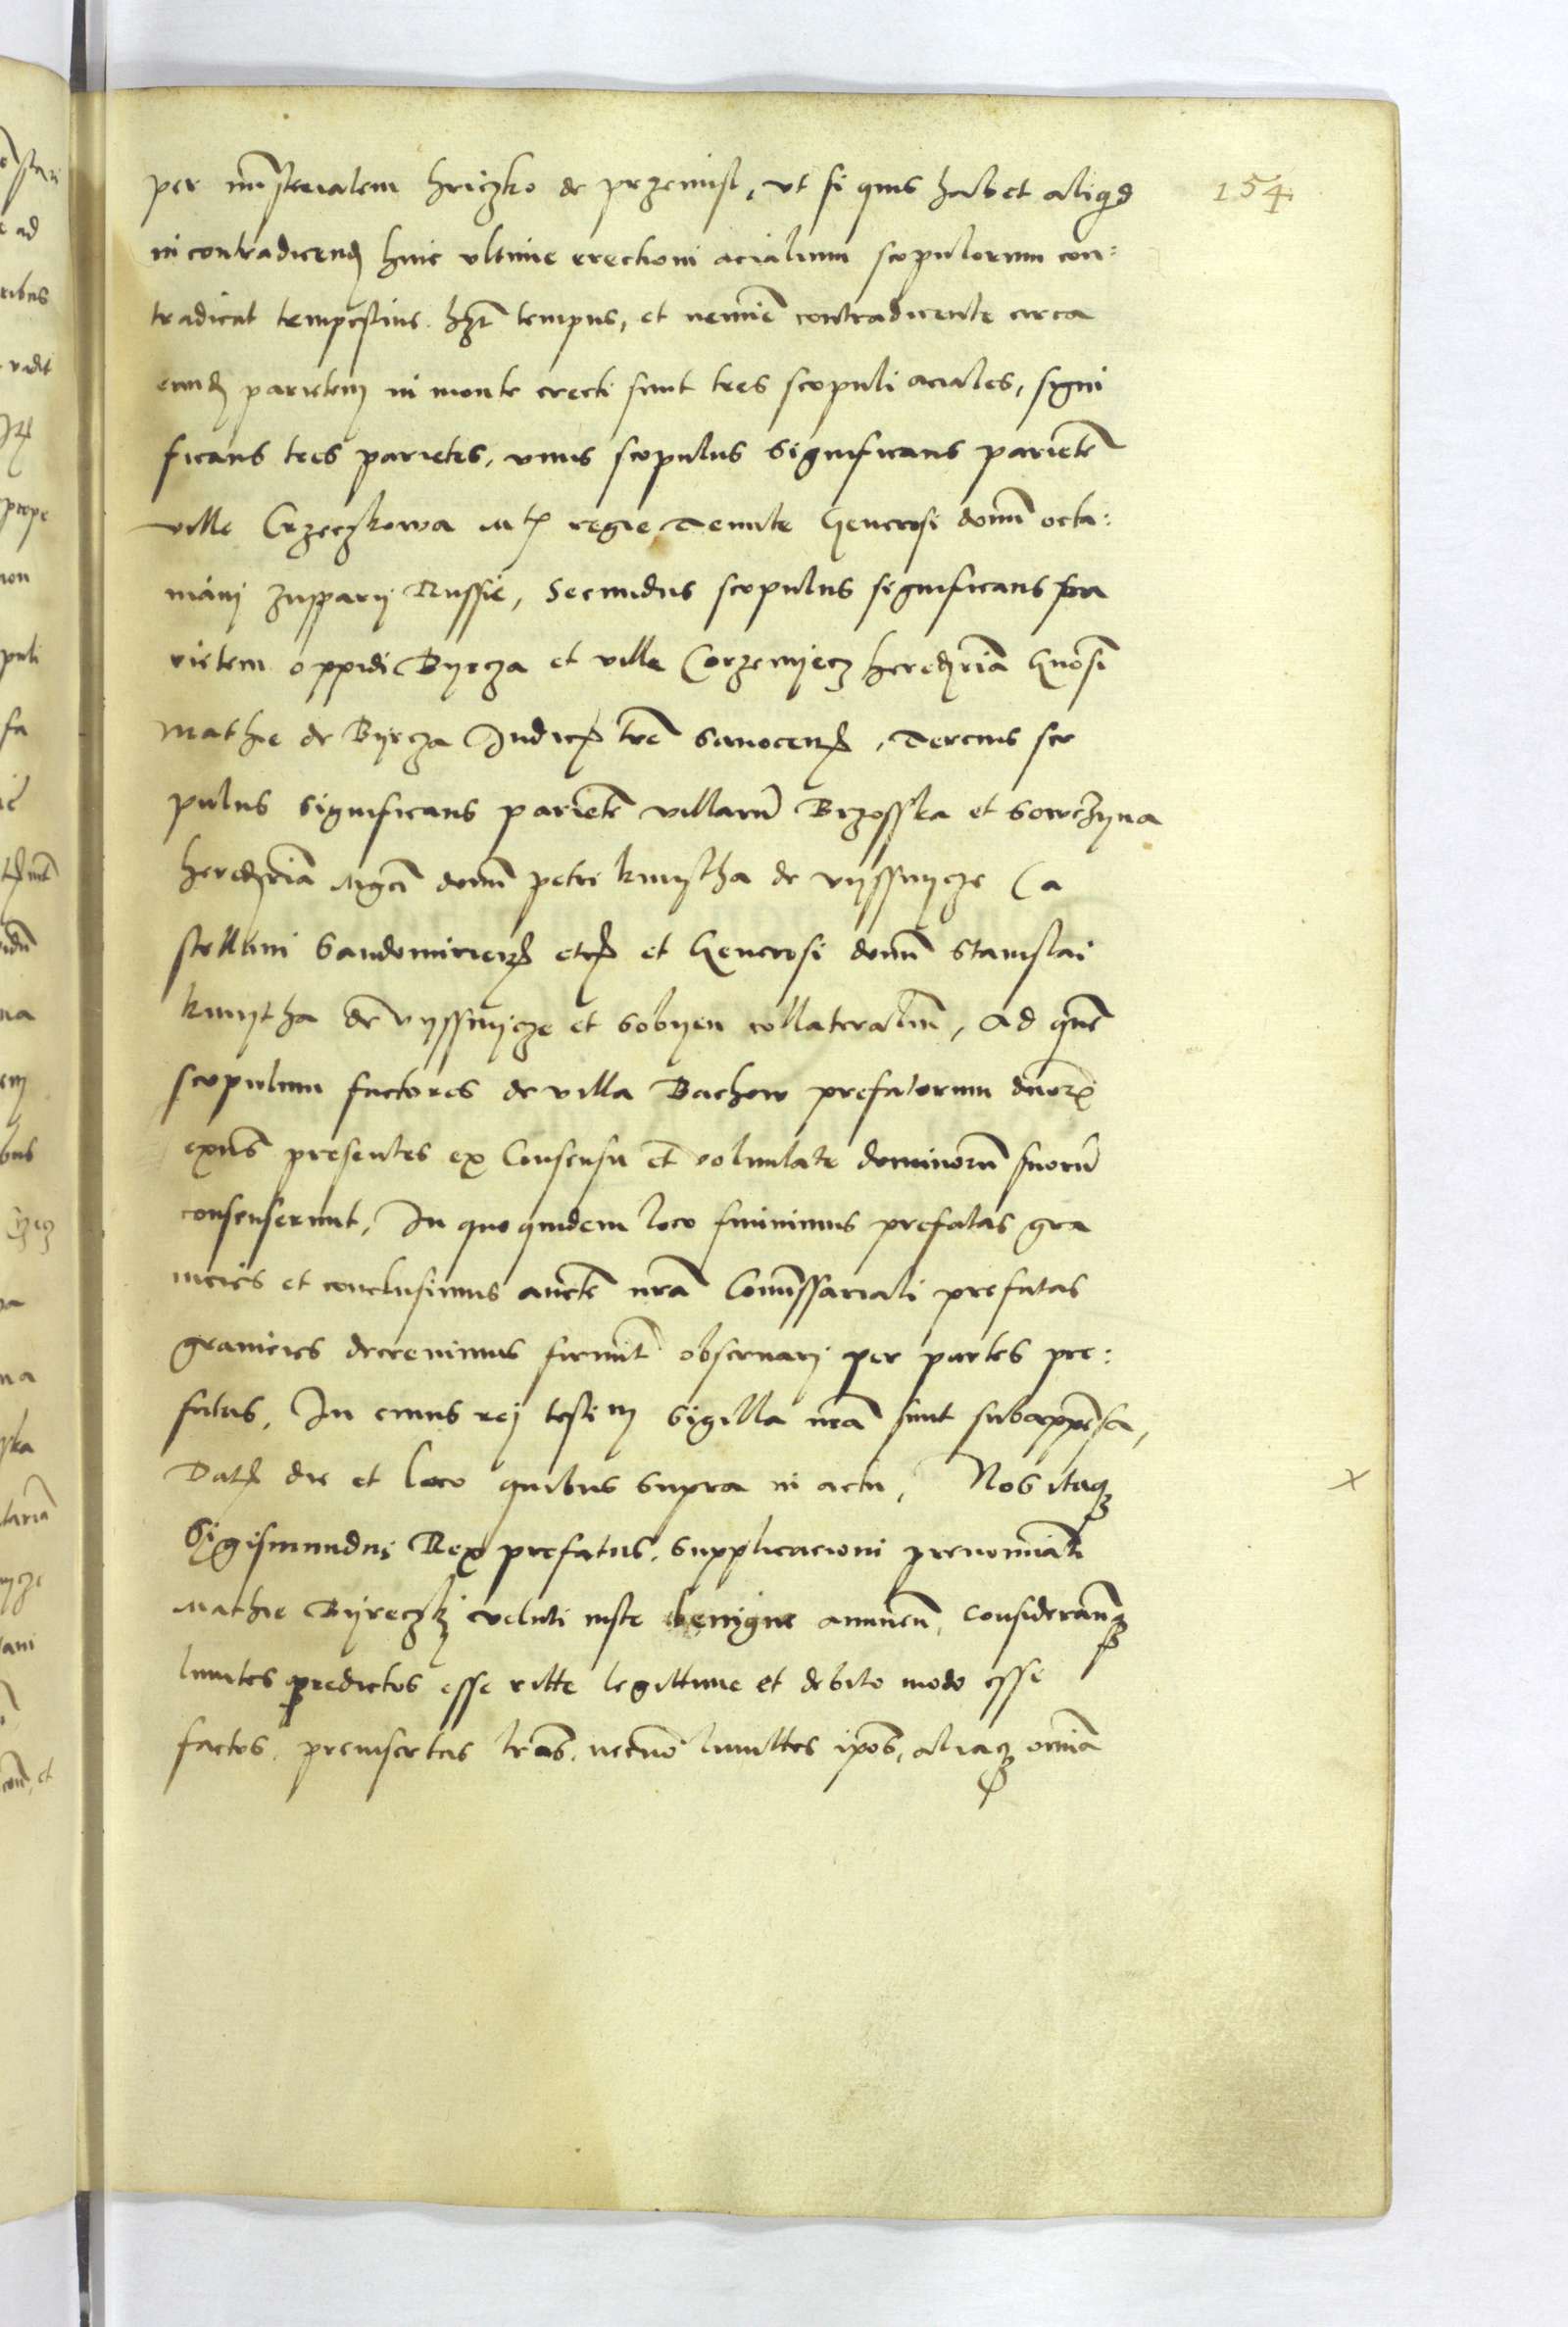 per ministerialem hriczko de przemisl, vt si quis habet aliquid
in contradicendum huic vltime erectioni acialium scopulorum con:
tradicat tempestiue hz tempus, et nemine contradicente circa
eundem parietem in monte erecti sunt tres scopuli aciales, signi
ficans tres parietes, vnus scopulus significans parietem
ville Crzeczkowa Mtis regie Tenute Generosi domini octa:
niani zupparij Russie, Secundus scopulus significans pa
rietem oppidi Byrcza et ville Corzemyecz hereditaria Gnosi
Mathie de Byrcza Judicis tre Sanocensis, Tercius sco
pulus significans parietem villarum Brzosska et Sowchyna
hereditaria Mgci domini petri kmytha de vyssnycze Ca
stellani Sandomiriensis etc et Generosi domini Stanislai
kmytha de vyssnycze et Sobyen collateralium, Ad quem
scopulum factores de villa Bachow prefatorum dnorum
exnns presentes ex Consensu et voluntate dominorum suorum
consenserunt, In quo quidem loco finiuimus prefatas gra
nicies et conclusimus aucte nra Commissariali prefatas
granicies decreuimus firmiter obseruarj per partes pre:
fatas, In cuius rej testim sigilla nra sunt subappensa,
Datum die et loco quibus supra in actu, Nos itaque
Sigismundus Rex prefatus, supplicacioni prenominati
Mathie Byreczkj veluti iuste benigne annuen, considerantesque
limites predictos esse ritte legittime et debito modo esse
factos, preinsertas lras, necno limittes ipos, aliaque omnia
154
x